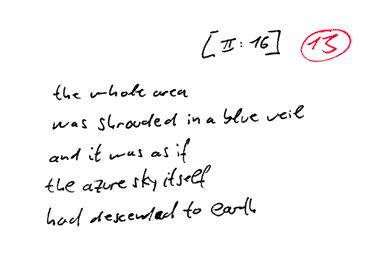 [II: 16] 13
the whole area
was shrouded in a blue veil
and it was as if
the azure sky itself
had descended to earth